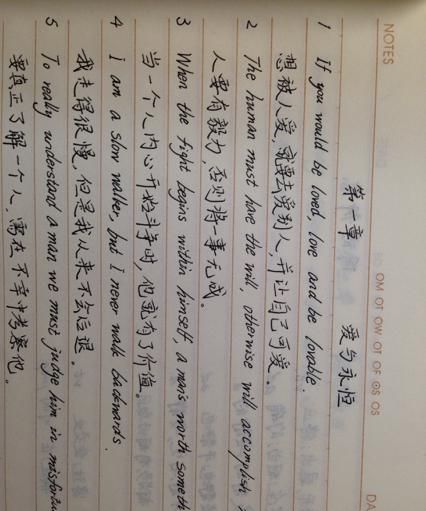 NOTES
MO TU WE TH FR SA SU
DA
第一章 爱与永恒
1 If you would be loved, love and be lovable.
想被人爱,就要去爱别人,并让自己可爱。
2 The human must have the will, otherwise will accomplish
人要有毅力,否则将一事无成。
3 When the fight begins within himself, a man's worth someth
当一个人内心开始斗争时,他就有了价值。
4 I am a slow walker, but I never walk backwards.
我走得很慢,但是我从来不会后退。
5 To really understand a man we must judge him in misfortu
要真正了解一个人,需在不幸中考察他。